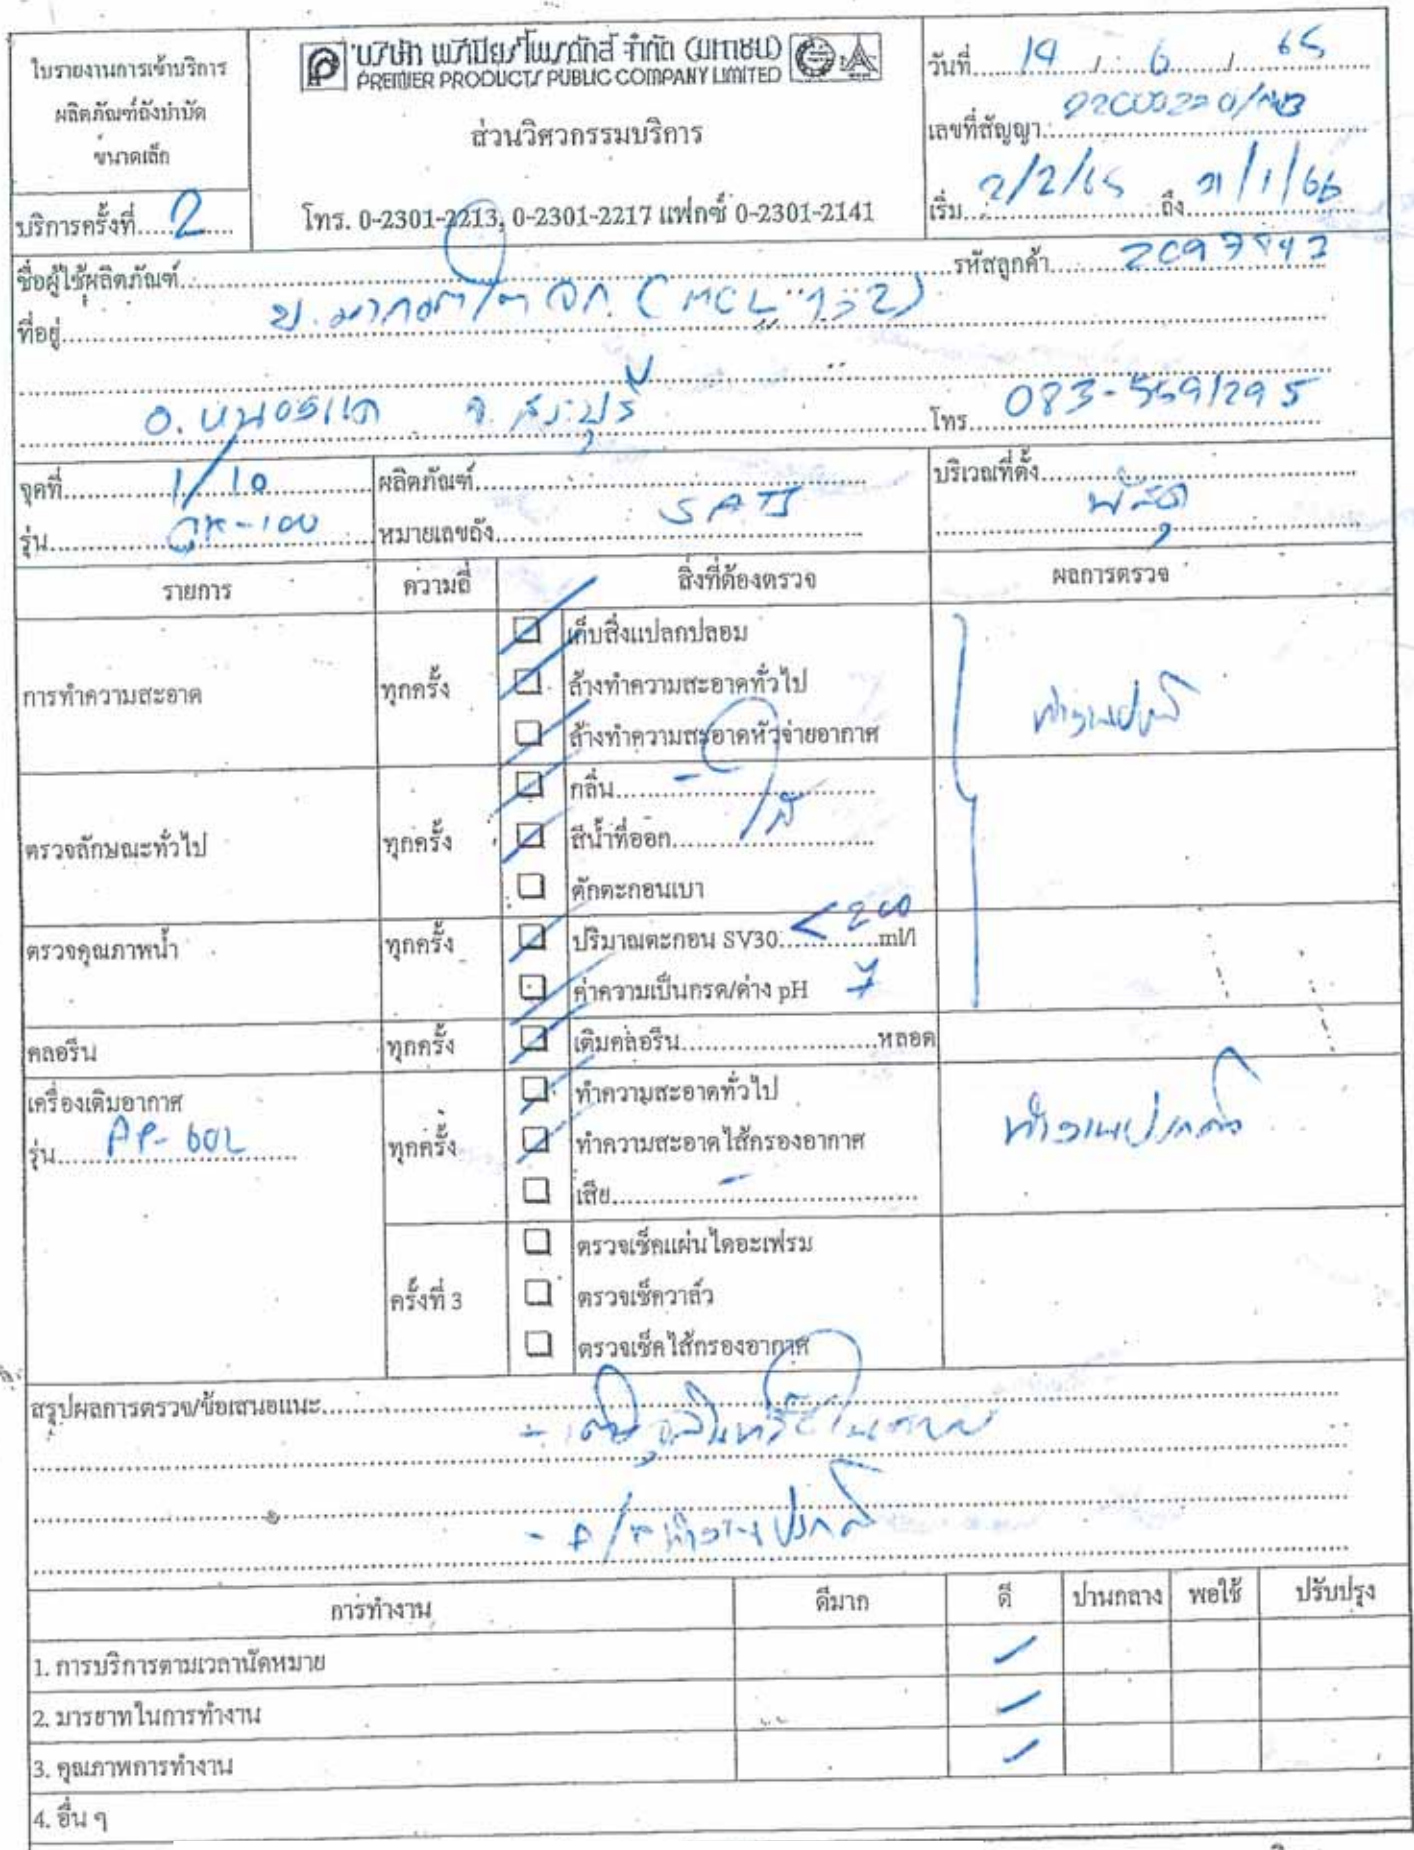 ใบรายงานการเข้าบริการ
ผลิตภัณฑ์ถังบำบัด
ขนาดเล็ก
บริการครั้งที่ 2
บริษัท พรีเมียร์โพรดักส์ จำกัด (มหาชน)
PREMIER PRODUCTS PUBLIC COMPANY LIMITED
ส่วนวิศวกรรมบริการ
โทร. 0-2301-2213, 0-2301-2217 แฟกซ์ 0-2301-2141
วันที่ 14 / 6 / 65
เลขที่สัญญา
เริ่ม 2/2/65 ถึง 31/1/66
ชื่อผู้ใช้ผลิตภัณฑ์ รหัสลูกค้า
ที่อยู่
อ. หนองแค จ. สระบุรี โทร. 083-5591295
จุดที่ 1/10 ผลิตภัณฑ์ บริเวณที่ตั้ง
รุ่น หมายเลขถัง SATS พัสดุ
รายการ ความถี่ สิ่งที่ต้องตรวจ ผลการตรวจ
การทำความสะอาด ทุกครั้ง เก็บสิ่งแปลกปลอม
ล้างทำความสะอาดทั่วไป
ล้างทำความสะอาดหัวจ่ายอากาศ
ตรวจลักษณะทั่วไป ทุกครั้ง กลิ่น -
สีน้ำที่ออก
ดักตะกอนเบา
ตรวจคุณภาพน้ำ ทุกครั้ง ปริมาณตะกอน SV30 <200 ml/l
ค่าความเป็นกรด/ด่าง pH 7
คลอรีน ทุกครั้ง เติมคลอรีน หลอด
เครื่องเติมอากาศ ทุกครั้ง ทำความสะอาดทั่วไป ทำงานปกติ
รุ่น AP-60L ทำความสะอาดไส้กรองอากาศ
เสีย -
ครั้งที่ 3 ตรวจเช็คแผ่นไดอะเฟรม
ตรวจเช็ควาล์ว
ตรวจเช็คไส้กรองอากาศ
สรุปผลการตรวจ/ข้อเสนอแนะ
- เติมจุลินทรีย์
ทำงานปกติ
การทำงาน ดีมาก ดี ปานกลาง พอใช้ ปรับปรุง
1. การบริการตามเวลานัดหมาย
2. มารยาทในการทำงาน
3. คุณภาพการทำงาน
4. อื่น ๆ